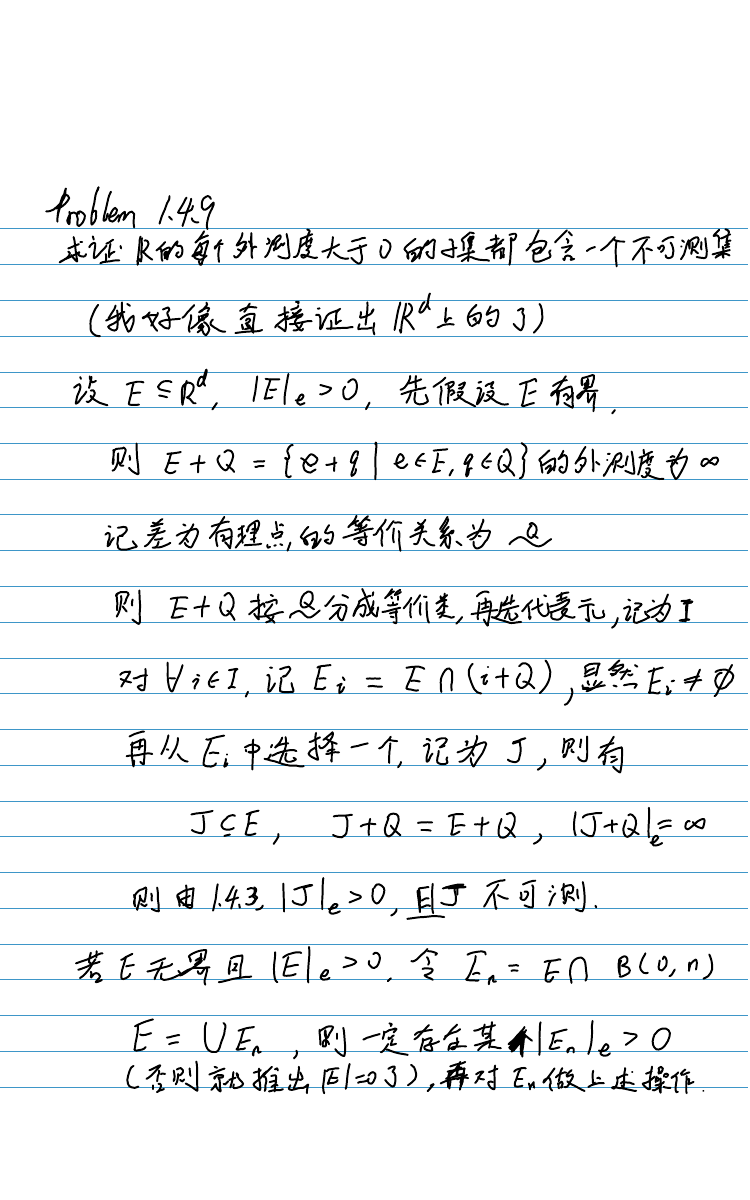 Problem 1.4.9
求证 R的每个外测度大于0的子集都包含一个不可测集
(我好像直接证出 R^d上的了)
设 E⊆R^d, |E|_e>0, 先假设E有界,
则 E+Q={e+q|e∈E,q∈Q}的外测度为∞
记差为有理点,的等价关系为 ~Q
则 E+Q按~Q分成等价类,再选代表元,记为I
对∀i∈I, 记 E_i = E∩(i+Q),显然E_i≠∅
再从E_i中选择一个,记为J,则有
J⊆E, J+Q=E+Q, |J+Q|_e=∞
则由1.4.3, |J|_e>0, 且J不可测.
若E无界且|E|_e>0, 令 E_n=E∩B(0,n)
E=∪E_n, 则一定存在某个|E_n|_e>0
(否则就推出|E|=0了),再对E_n做上述操作.